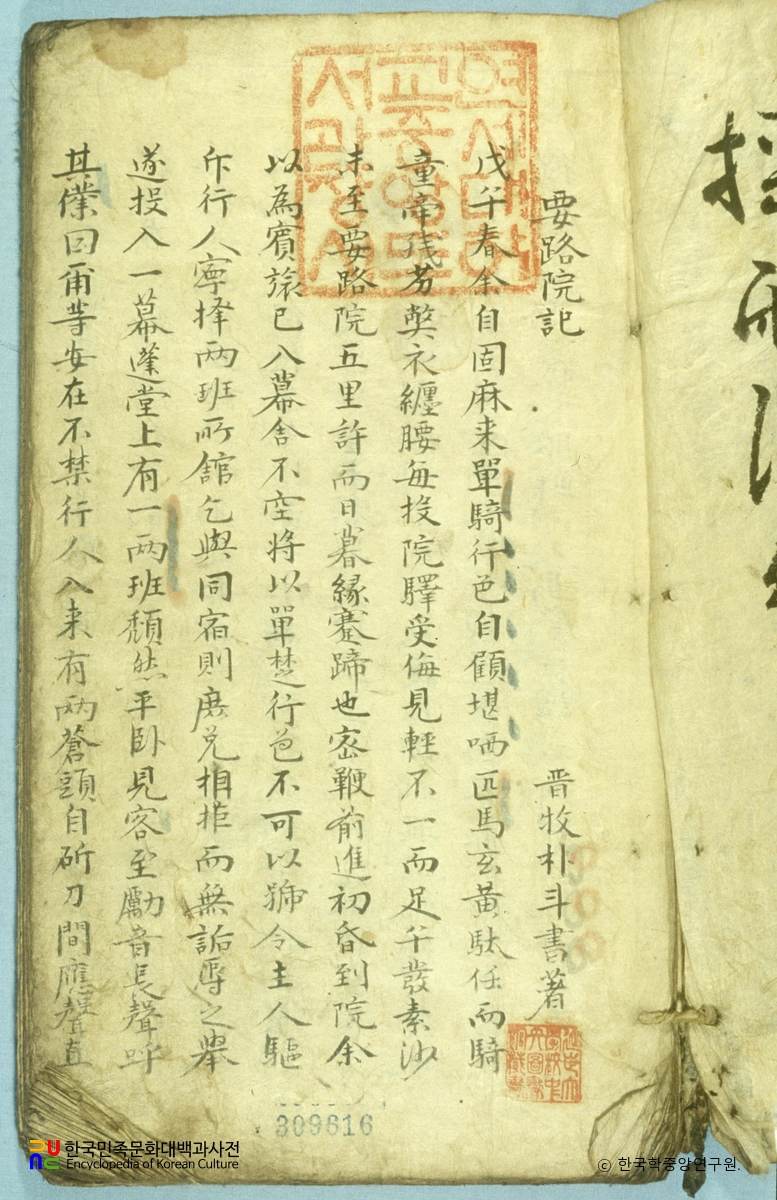 要路院記
晋牧朴斗書著
戊午春余自固麻来單騎行色自顧堪哂匹馬玄黃駄任而騎
童帝残劣獘衣纏腰每投院驛受侮見輕不一而足午發素沙
未至要路院五里許而日暮緣蹇蹄也密鞭前進初昏到院余
以為賓旅已入幕舍不空將以單楚行色不可以號令主人驅
斥行人寧擇两班所舘乞與同宿則庶免相拒而無詬辱之舉
遂投入一幕蓬堂上有一两班頹然平卧見客至勵音長聲呼
其僕曰爾等安在不禁行人入来有两蒼頭自斫刀間應聲直
연세대학
교중앙도
서관장서
309616
한국민족문화대백과사전
Encyclopedia of Korean Culture
ⓒ 한국학중앙연구원.